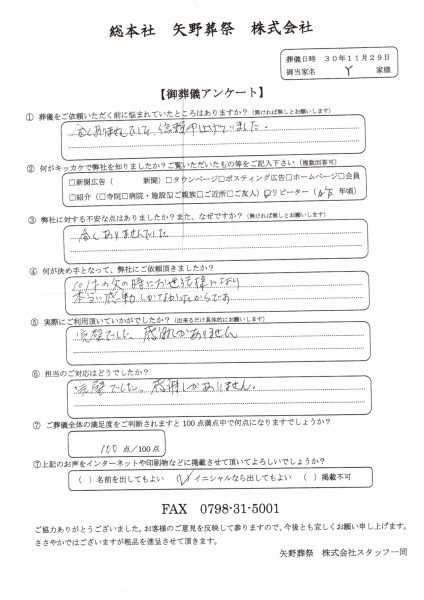 総本社 矢野葬祭 株式会社
葬儀日時 30年11月29日
御当家名 Y 家様
【御葬儀アンケート】
① 葬儀をご依頼いただく前に悩まれていたところはありますか？(無ければ無しとお願いします)
全くありませんでした。信頼申し上げていました。
② 何がキッカケで弊社を知りましたか？ご覧いただいたもの等をご記入下さい (複数回答可)
□新聞広告 ( 新聞) □タウンページ□ポスティング広告□ホームページ□会員
□紹介 (□寺院□病院・施設☑ご親族□ご近所□ご友人) □リピーター ( 年頃)
③ 弊社に対する不安な点はありましたか？また、なぜですか？(無ければ無しとお願いします)
全くありませんでした
④ 何が決め手となって、弊社にご依頼頂きましたか？
の時にお世話様になり
本当に感動しか
⑤ 実際にご利用頂いていかがでしたか？(出来るだけ具体的にお願いします)
完璧でした。感謝しかありません
⑥ 担当のご対応はどうでしたか？
完璧でした。感謝しかありません。
⑦ ご葬儀全体の満足度をご判断されますと100点満点中で何点になりますでしょうか？
100 点/100点
⑦上記のお声をインターネットや印刷物などに掲載させて頂いてよろしいでしょうか？
( ) 名前を出してもよい (✓) イニシャルなら出してもよい ( ) 掲載不可
FAX 0798-31-5001
ご協力ありがとうございました。お客様のご意見を反映して参りますので、今後とも宜しくお願い申し上げます。
ささやかではございますが粗品を進呈させて頂きます。
矢野葬祭 株式会社スタッフ一同